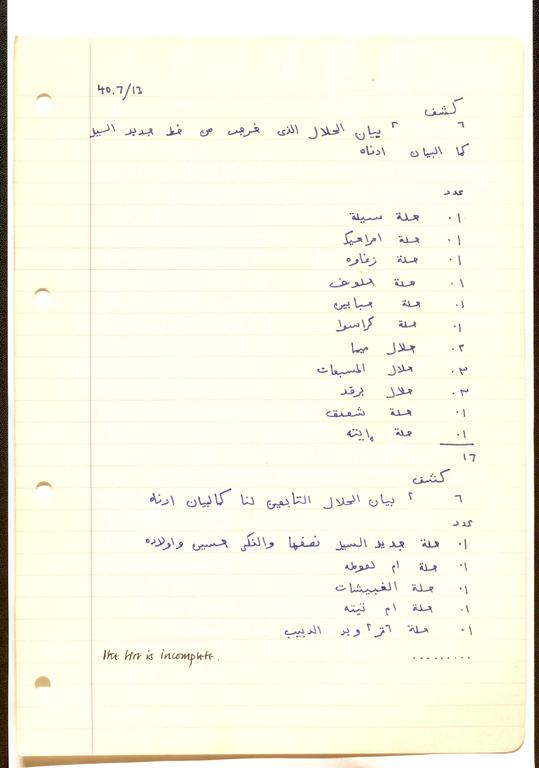 40.7/13
كشف
٦ ٢ بيان الحلال الذى خرجت من خط جديد السيل
كما البيان ادناه
عدد
٠١ حلة سيلة
٠١ حلة
٠١ حلة زغاوه
٠١ حلة
٠١ حلة
٠١ حلة كراسوا
٠٢ حلال ميما
٠٣ حلال المسبعات
٠٣ حلال برقد
٠١ حلة
٠١ حلة
١٦
كشف
٦ ٢ بيان الحلال التابعين لنا كالبيان ادناه
عدد
٠١ حلة جديد السيل نصفها والفكى حسين واولاده
٠١ حلة ام لعوطه
٠١ حلة الغبيشات
٠١ حلة ام تيته
٠١ حلة الدبيب
The list is incomplete. .........